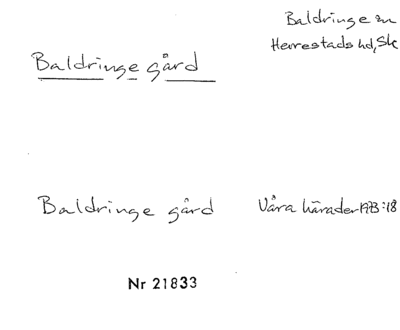 Baldringe sn
Herrestads hd, Sk
Baldringe gård
Baldringe gård Våra härader 1973:18
Nr 21833